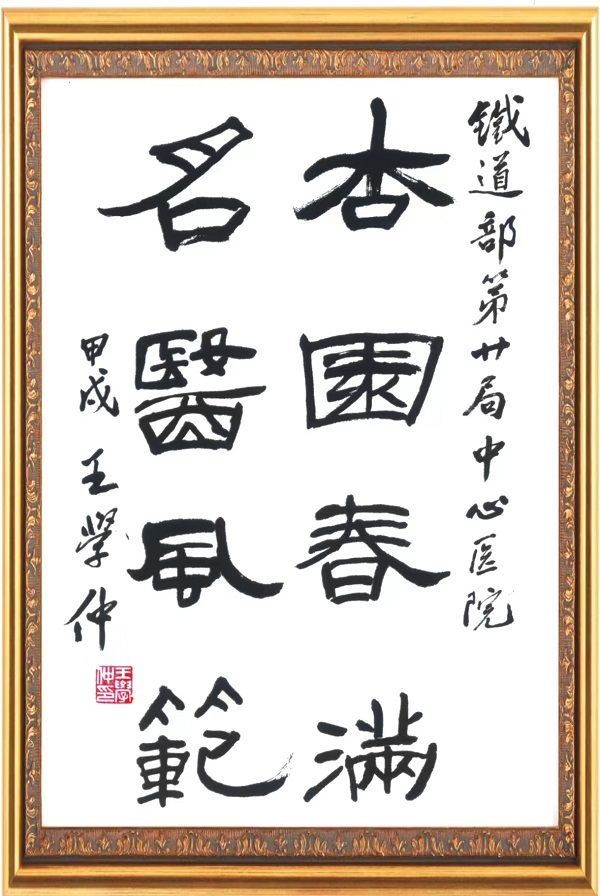 鐵道部第廿局中心医院
杏園春滿
名醫風範
甲戌王學仲
王學仲印